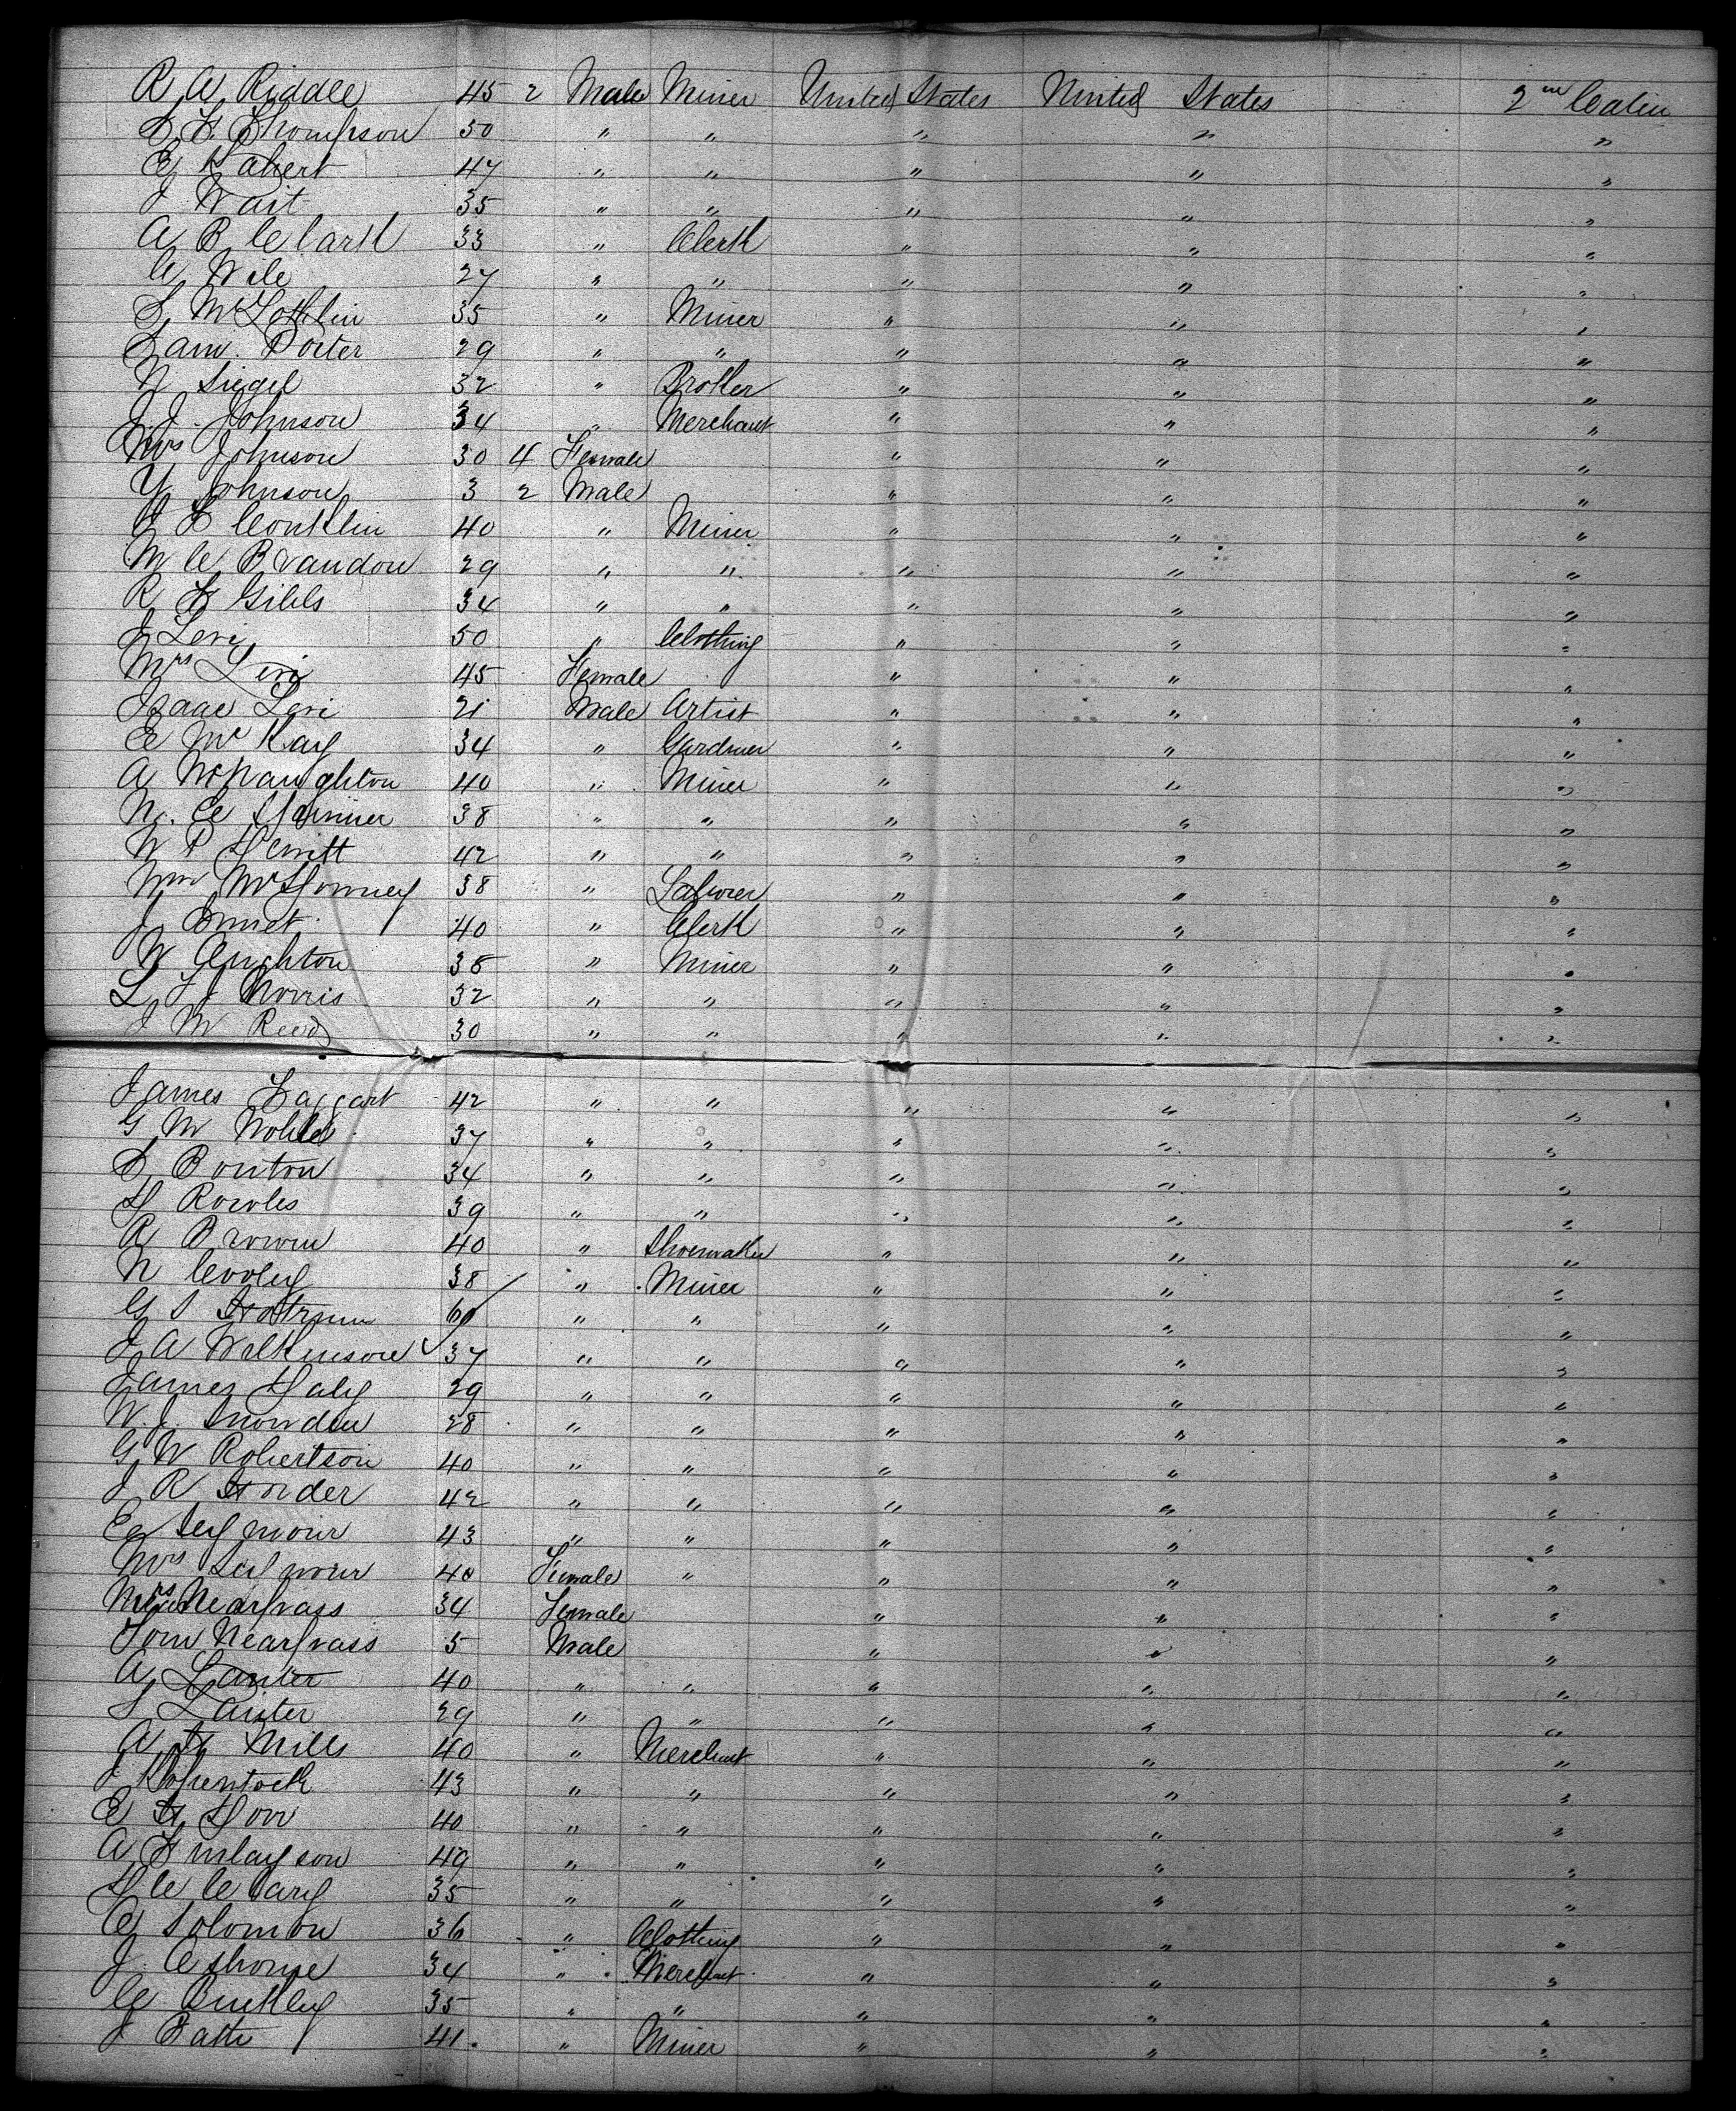 R A Riddle 45 2 Male Miner United States United States 2nd Cabin
S. F. Thompson 50 " " " " "
E Kabert 47 " " " " "
J Wait 35 " " " " "
A B Clark 33 " Clerk " " "
C Wile 27 " " " " "
S. McLothlin 35 " Miner " " "
Sam. Porter 29 " " " " "
N Siegel 32 " Broker " " "
J. J. Johnson 34 " Merchant " " "
Mrs Johnson 30 4 Female " " "
Y Johnson 3 2 Male " " "
J F Conklin 40 " Miner " " "
M C Brandon 29 " " " " "
R F Gibbs 34 " " " " "
J Levi 50 " Clothing " " "
Mrs Levi 45 Female " " "
Isaac Levi 21 Male Artist " " "
C McKay 34 " Gardner " " "
A McNaughton 40 " Miner " " "
N. C 38 " " " " "
W P Hewitt 42 " " " " "
Wm 38 " Laborer " " "
J Emmet 40 " Clerk " " "
W Creighton 38 " Miner " " "
L J Norris 32 " " " " "
J W Reed 30 " " " " "
James Taggart 42 " " " " "
G W Nobles 37 " " " " "
S Bouton 34 " " " " "
H Rowles 39 " " " " "
R Brown 40 " Shoemaker " " "
N Cooley 38 " Miner " " "
G S 60 " " " " "
J A Wilkinson 37 " " " " "
James Haly 29 " " " " "
W. J. Snowden 28 " " " " "
G W Robertson 40 " " " " "
J R Horder 42 " " " " "
E Seymour 43 " " " " "
Mrs Seymour 40 Female " " " "
Mrs Nearpass 34 Female " " "
Tom Nearpass 5 Male " " "
A Lanter 40 " " " " "
S Lanter 29 " " " " "
A H Mills 40 " Merchant " " "
J 43 " " " " "
E H Dorr 40 " " " " "
A Finlayson 49 " " " " "
H C Clary 35 " " " " "
C Solomon 36 " Clothing " " "
J. Cthorpe 34 " Merchant " " "
C Buckley 35 " " " " "
J Batti 41. " Miner " " "